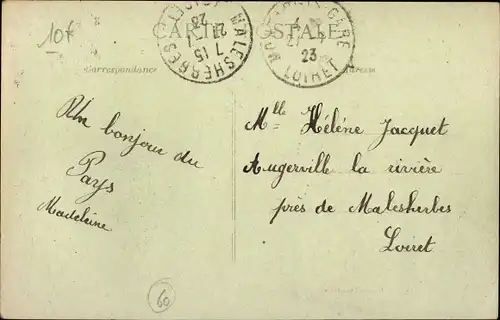 10f
CARTE POSTALE
MALESHERBES
7 15
23
GARE
23
LOIRET
Correspondance
Un bonjour du
Pays
Madeleine
Mlle Hélène Jacquet
Augerville la rivière
près de Malesherbes
Loiret
60